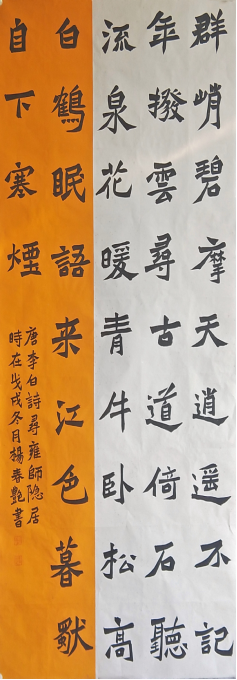 群峭碧摩天逍遥不記
年撥雲尋古道倚石聽
流泉花暖青牛卧松高
白鶴眠語来江色暮獨
自下寒煙
唐李白詩尋雍師隐居
時在戊戌冬月楊春艷書